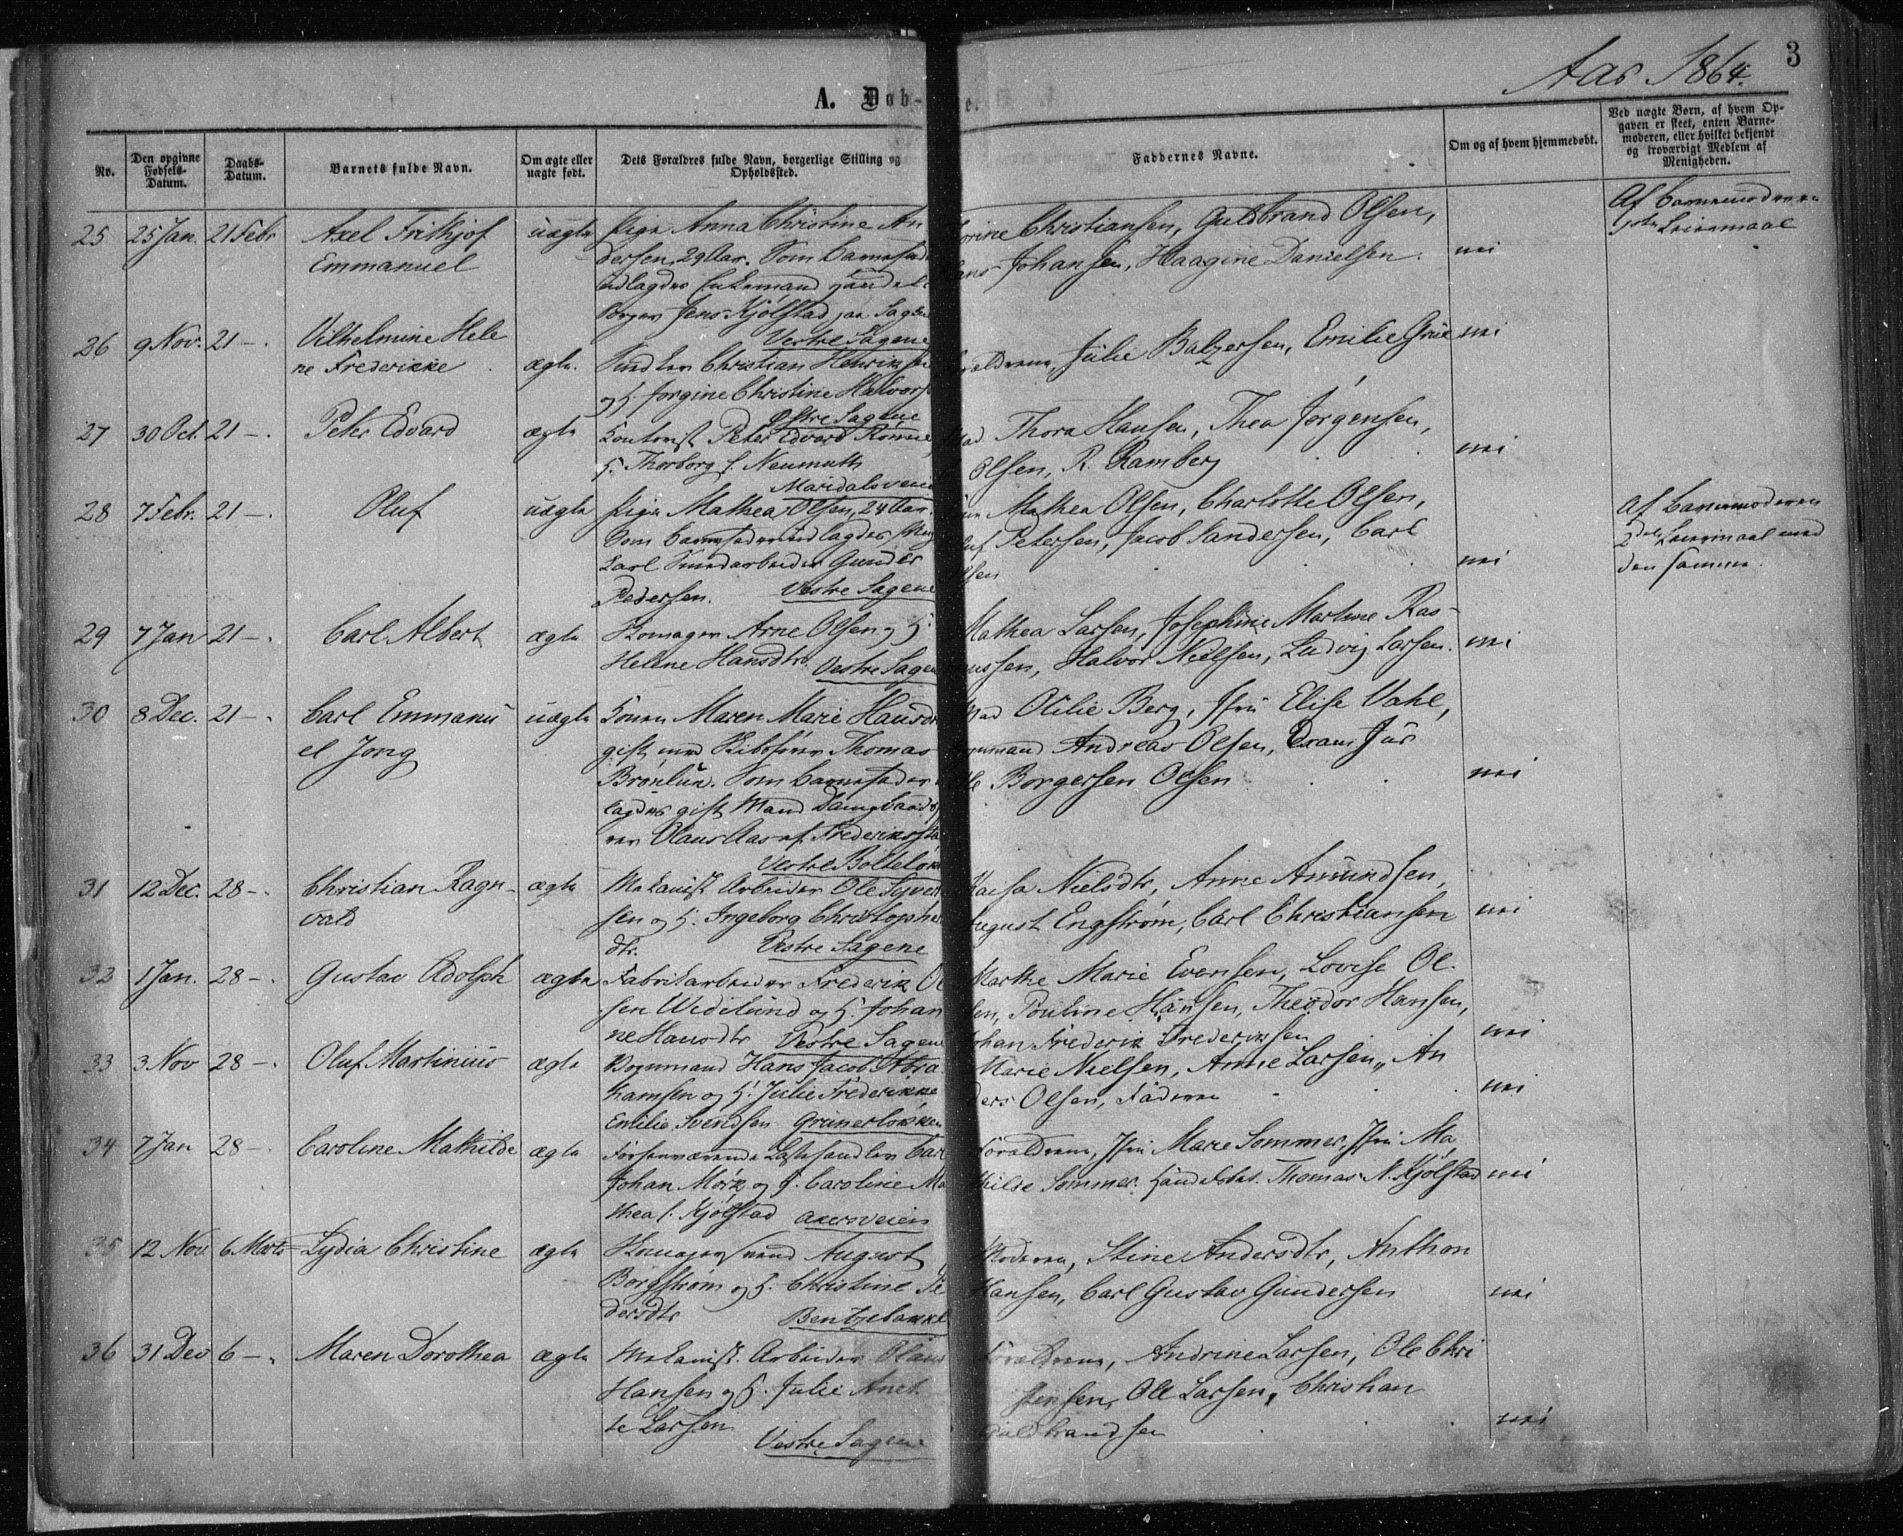 3
Aar 1864.
A. Døb-
No.
Den opgivne Fødsels-Datum.
Daabs-Datum.
Barnets fulde Navn.
Om ægte eller uægte født.
Dets Forældres fulde Navn, borgerlige Stilling og Opholdssted.
Faddernes Navne.
Om og af hvem hjemmedøbt.
Ved uægte Børn, af hvem Opgaven er skeet, enten Barnemoderen, eller hvilket bekjendt og troværdigt Medlem af Menigheden.
25 25 Jan. 21 Febr Axel Frithjof uægte Pige Anna Christine An
Emmanuel
dersen, 29 Aar. Som barnefad
udlagdes Enkemand Handels
borger Jens Kjølstad paa Sagen
Vestre Sagene
orine Christiansen, Guldbrand Olsen,
Johansen, Haagine Danielsen. nei
Af barnemoderen
1ste Leiermaal
26 9 Nov. 21 -. Vilhelmine Hele
ne Frederikke ægte. Christian Henriksen
og H. Jorgine Christine Halvors
Østre Sagene
Julie Balzersen, Emilie Grüe nei
27 30 Oct. 21 -. Peter Edvard ægte Kontorist Peter Edvard Romcke
H. Thorborg f. Neumuth
Maridalsveien
Mad Thora Hansen, Thea Jørgensen,
Olsen, R. Ramberg nei
28 7 Febr. 21 -. Oluf uægte Pige Mathea Olsen, 24 Aar.
Som barnefader udlagdes Ung
karl Smedarbeider Gunder
Pedersen. Vestre Sagene
Mathea Olsen, Charlotte Olsen,
Petersen, Jacob Sandersen, Carl
Olsen nei
Af barnemoderen
2det Leiermaal med
den samme.
29 7 Jan 21 -. Carl Albert ægte Skomager Arne Olsen og H.
Helene Hansdtr Vestre Sagene
Mathea Larsen, Josephine Martine Ras-
mussen, Halvor Nielsen, Ludvig Larsen. nei
30 8 Dec. 21 -. Carl Emmanu
el Jong uægte Konen Maren Marie Hansdtr
gift med Skibsfører Thomas
Brønlun. Som barnefader
lagdes gift Mand Dampbaads
rer Olaus Aas af Frederiksstad
Vestre Bolteløk
Mad Otilie Berg, Jfru Elise Vahl,
Bogmand Andreas Olsen, Exam Jur
Ole Borgersen Olsen nei
31 12 Dec. 28 -. Christian Ragn-
vald ægte Mekanisk Arbeider Ole Syver
sen og H. Ingeborg Christophers
dtr. Vestre Sagene
Kaisa Nielsdtr, Anne Amundsen,
August Engstrøm, Carl Christiansen nei
32 1 Jan. 28 -. Gustav Adolph ægte Fabrikarbeider Frederik Ol
sen Wedelund og H. Johan
ne Hansdtr Vestre Sagene
Marthe Marie Evensen, Lovise Ol-
sen, Pouline Hansen, Theodor Hansen,
Johan Frederik Frederiksen nei
33 3 Nov 28 -. Oluf Martinius ægte Bogmmand Hans Jacob Abra
hamsen og H. Julie Frederikke
Emilie Svendsen Grünerløkken
Marie Nielsen, Anne Larsen, An
ders Olsen, Faderen nei
34 7 Jan 28 -. Caroline Mathilde ægte Forhenværende Carl
Johan Mørk og H. Caroline Ma
thea f. Kjølstad Akersveien
Forældrene, Jfru Marie Sommer, Jfru Ma
thilde Sommer. Handelsbet. Thomas N. Kjølstad nei
35 12 Nov 6 Marts Lydia Christine ægte Skomagersvend August
Borgstrøm og H. Christine Pe
dersdtr Bentzebakken
Moderen, Stine Andersdtr, Anthon
Hansen, Carl Gustav Gundersen nei
36 31 Dec 6 -. Maren Dorothea ægte Mekanisk Arbeider Olaus
Hansen og H. Julie Anet
te Larsen
Vestre Sagene
Forældrene, Andrine Larsen, Ole Chri
stensen, Ole Larsen, Christian
Guldbrandsen nei